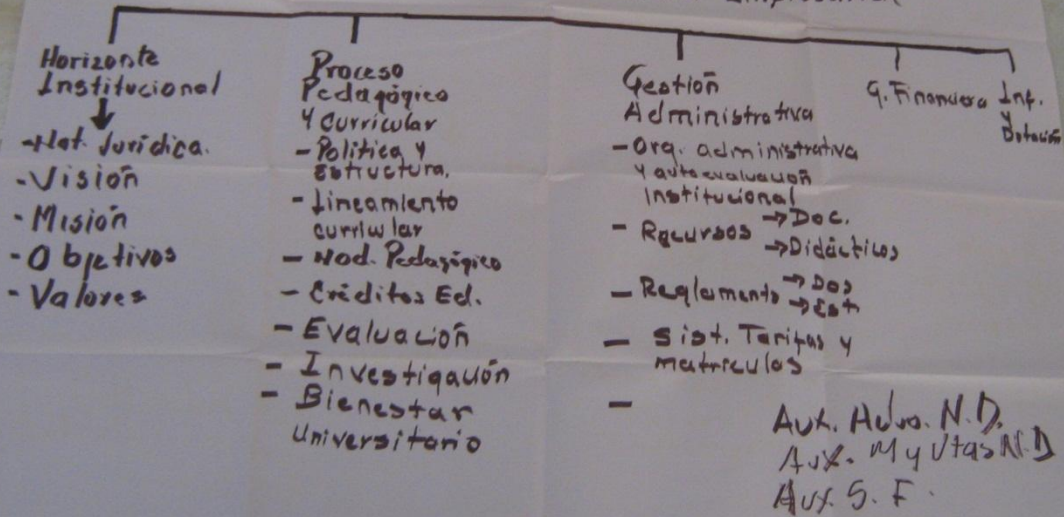 Horizonte
Institucional
-Nat. Jurídica.
-Visión
-Misión
-Objetivos
-Valores
Proceso
Pedagógico
y curricular
-Política y
estructura.
-Lineamiento
curricular
-Mod. Pedagógico
-Créditos Ed.
-Evaluación
-Investigación
-Bienestar
Universitario
Gestión
Administrativa
-Org. administrativa
y autoevaluación
Institucional
-Recursos →Doc.
→Didácticos
-Reglamento →Doc
→Est
-Sist. Tarifas y
matrículas
-
G. Financiera
Inf.
y
Dotación
Aux. Advo. N.D.
Aux. M y Vtas N.D
Aux. S. F.